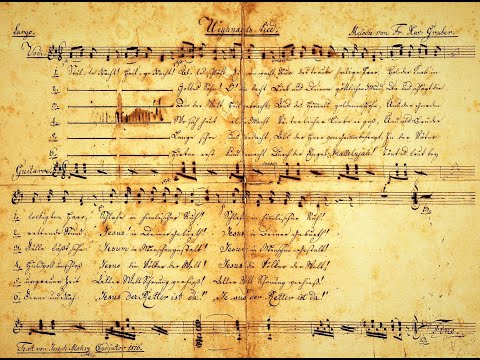 Largo. Weynachts-Lied. Melodie von Fr. Xav. Gruber.
Voce
1. Stille Nacht! Heilige Nacht! Alles schläft; einsam wacht Nur das traute heilige Paar. Holder Knab' im
2. Gottes Sohn! O! wie lacht Lieb' aus deinem göttlichen Mund, Da uns schlägt die
3. Die der Welt Heil gebracht, Aus des Himmels goldenen Höhn, Aus der Gnaden
4. Wo sich heut alle Macht Väterlicher Liebe ergoß, Und als Bruder
5. Lange schon uns bedacht, Als der Herr vom Grimme befreyt, In der Väter
6. Hirten erst kund gemacht Durch der Engel Hallelujah! Tönt es laut bey
Guitarre
1. lockigten Haar, Schlafe in himmlischer Ruh! Schlafe in himmlischer Ruh!
2. rettende Stund, Jesus in deiner Geburt! Jesus in deiner Geburt!
3. Fülle läßt sehn Jesum in Menschengestalt! Jesum in Menschengestalt!
4. huldvoll umschloß Jesus die Völker der Welt! Jesus die Völker der Welt!
5. urgrauer Zeit Aller Welt Schonung verhieß! Aller Welt Schonung verhieß!
6. Ferne und Nah: "Jesus der Retter ist da!" "Jesus der Retter ist da!"
Fine.
Text von Joseph Mohr Coadjutor 1816.